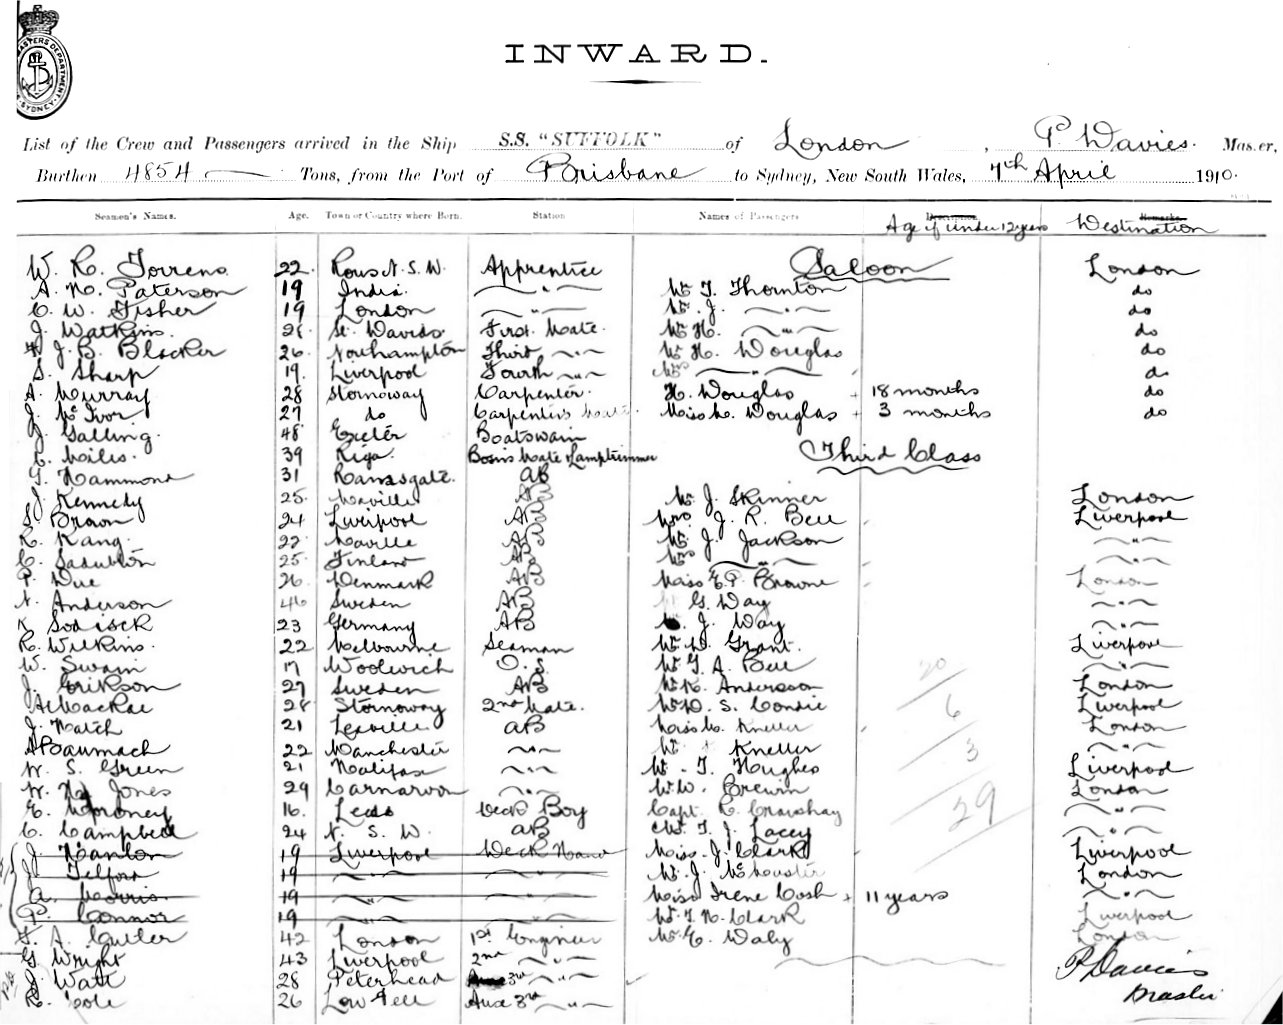 MASTERS DEPARTMENT
SYDNEY
INWARD.
List of the Crew and Passengers arrived in the Ship S.S. "SUFFOLK" of London, P. Davies. Master,
Burthen 4854 Tons, from the Port of Brisbane to Sydney, New South Wales, 7th April 1910.
Seamen's Names. Age. Town or Country where Born. Station Names of Passengers Description Remarks
Age if under 12 years Destination
W. R. Torrens 22 N. S. W. Apprentice Saloon London
A. N. Paterson 19 India " Mr T. Thornton do
C. W. Fisher 19 London " Mr J. " do
J. Watkins 28 St. Davids First Mate Mr H. " do
J. B. Blacker 26 Northampton Third " Mr H. Douglas do
S. Sharp 19 Liverpool Fourth " Mrs " do
A. Murray 28 Stornoway Carpenter H. Douglas 18 months do
J. McIvor 27 do Carpenters Mate Miss M. Douglas 3 months do
J. Galling 48 Exeter Boatswain
C. Miles 39 Riga Bosns Mate Lamptrimmer Third Class
T. Hammond 31 Ramsgate AB
J. Kennedy 25 Maville AB Mr J. Skinner London
S. Brown 24 Liverpool AB Mrs J. R. Bell Liverpool
R. Kang 22 Maville AB Mr J. Jackson "
C. 25 Finland AB Mrs " "
P. Due 26 Denmark AB Miss E. P. Browne London
N. Anderson 46 Sweden AB G. Way "
K. 23 Germany AB J. Way "
R. Wilkins 22 Melbourne Seaman Mr D. Grant Liverpool
W. Swain 17 Woolwich O. S. Mr T. A. Bell "
J. Erikson 27 Sweden AB Mr K. Andersson London
A. MacRae 28 Stornoway 2nd Mate Mr D. S. Liverpool
J. Hatch 21 AB Miss M. Kneller London
A Baumach 22 Manchester " Mr Kneller "
W. S. Green 21 Halifax " Mr T. Hughes Liverpool
W. H. Jones 29 Carnarvon " Mr W. Brewin London
E. Moroney 16 Leeds Deck Boy Capt. R. Crawshay "
C. Campbell 24 N. S. W. AB Mr T. J. Lacey "
J. Hanlon 19 Liverpool Deck Hand Miss J. Clark Liverpool
J. Telford 19 " " Mr J. McMaster London
A. Morris 19 " " Miss Irene Cosh 11 years "
P. Connor 19 " " Mr T. H. Clark Liverpool
T. A. Cutler 42 London 1st Engineer Mr E. Daly London
G. Wright 43 Liverpool 2nd "
J. Watt 28 Peterhead 3rd "
R. Cole 26 Low Fell Auxe 3rd "
20
6
3
29
P Davies
Master